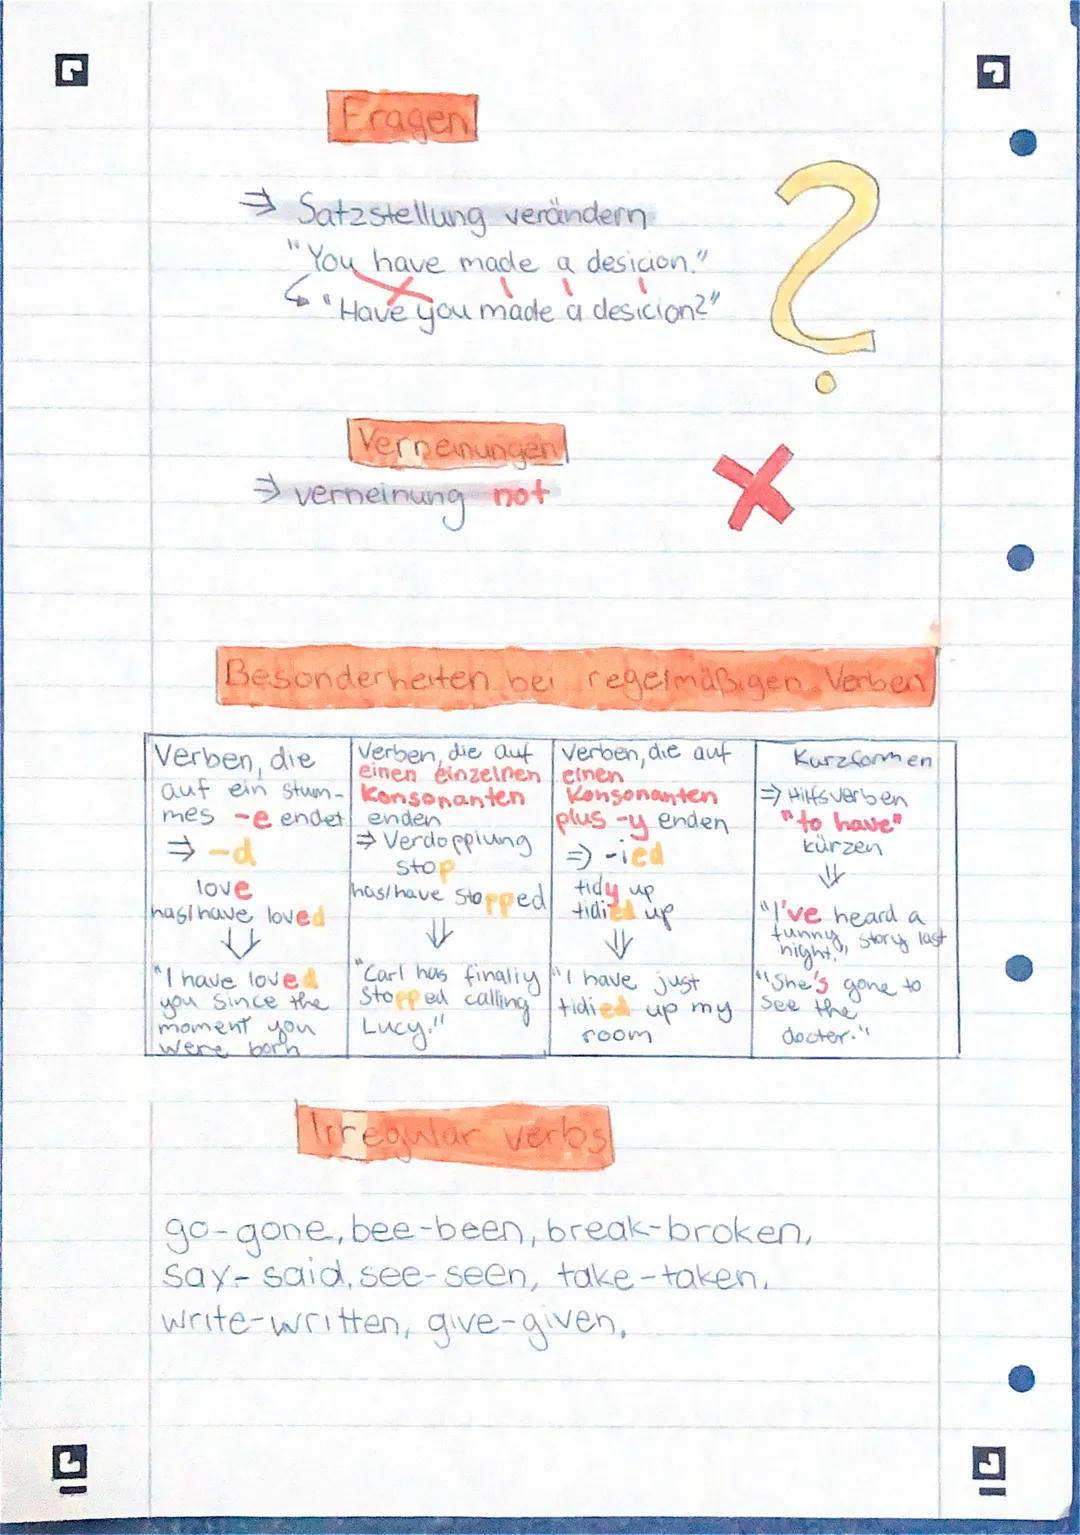 Fragen
⇒ Satzstellung verändern
"You have made a desicion."
↳ "Have you made a desicion?"
?
Verneinungen
⇒ verneinung not
Besonderheiten bei regelmäßigen Verben
Verben, die
auf ein stum-
mes -e endet
⇒ -d
love
has/have loved
⇓
"I have loved
you since the
moment you
were born
Verben, die auf
einen einzelnen
Konsonanten
enden
⇒ Verdopplung
stop
has/have stopped
⇓
"Carl has finally
stopped calling
Lucy."
Verben, die auf
einen
Konsonanten
plus -y enden
⇒ -ied
tidy up
tidied up
⇓
"I have just
tidied up my
room
Kurzformen
⇒ Hilfsverben
"to have"
kürzen
⇓
"I've heard a
funny story last
night."
"She's gone to
see the
docter."
Irregular verbs
go-gone, bee-been, break-broken,
say-said, see-seen, take-taken,
write-written, give-given,